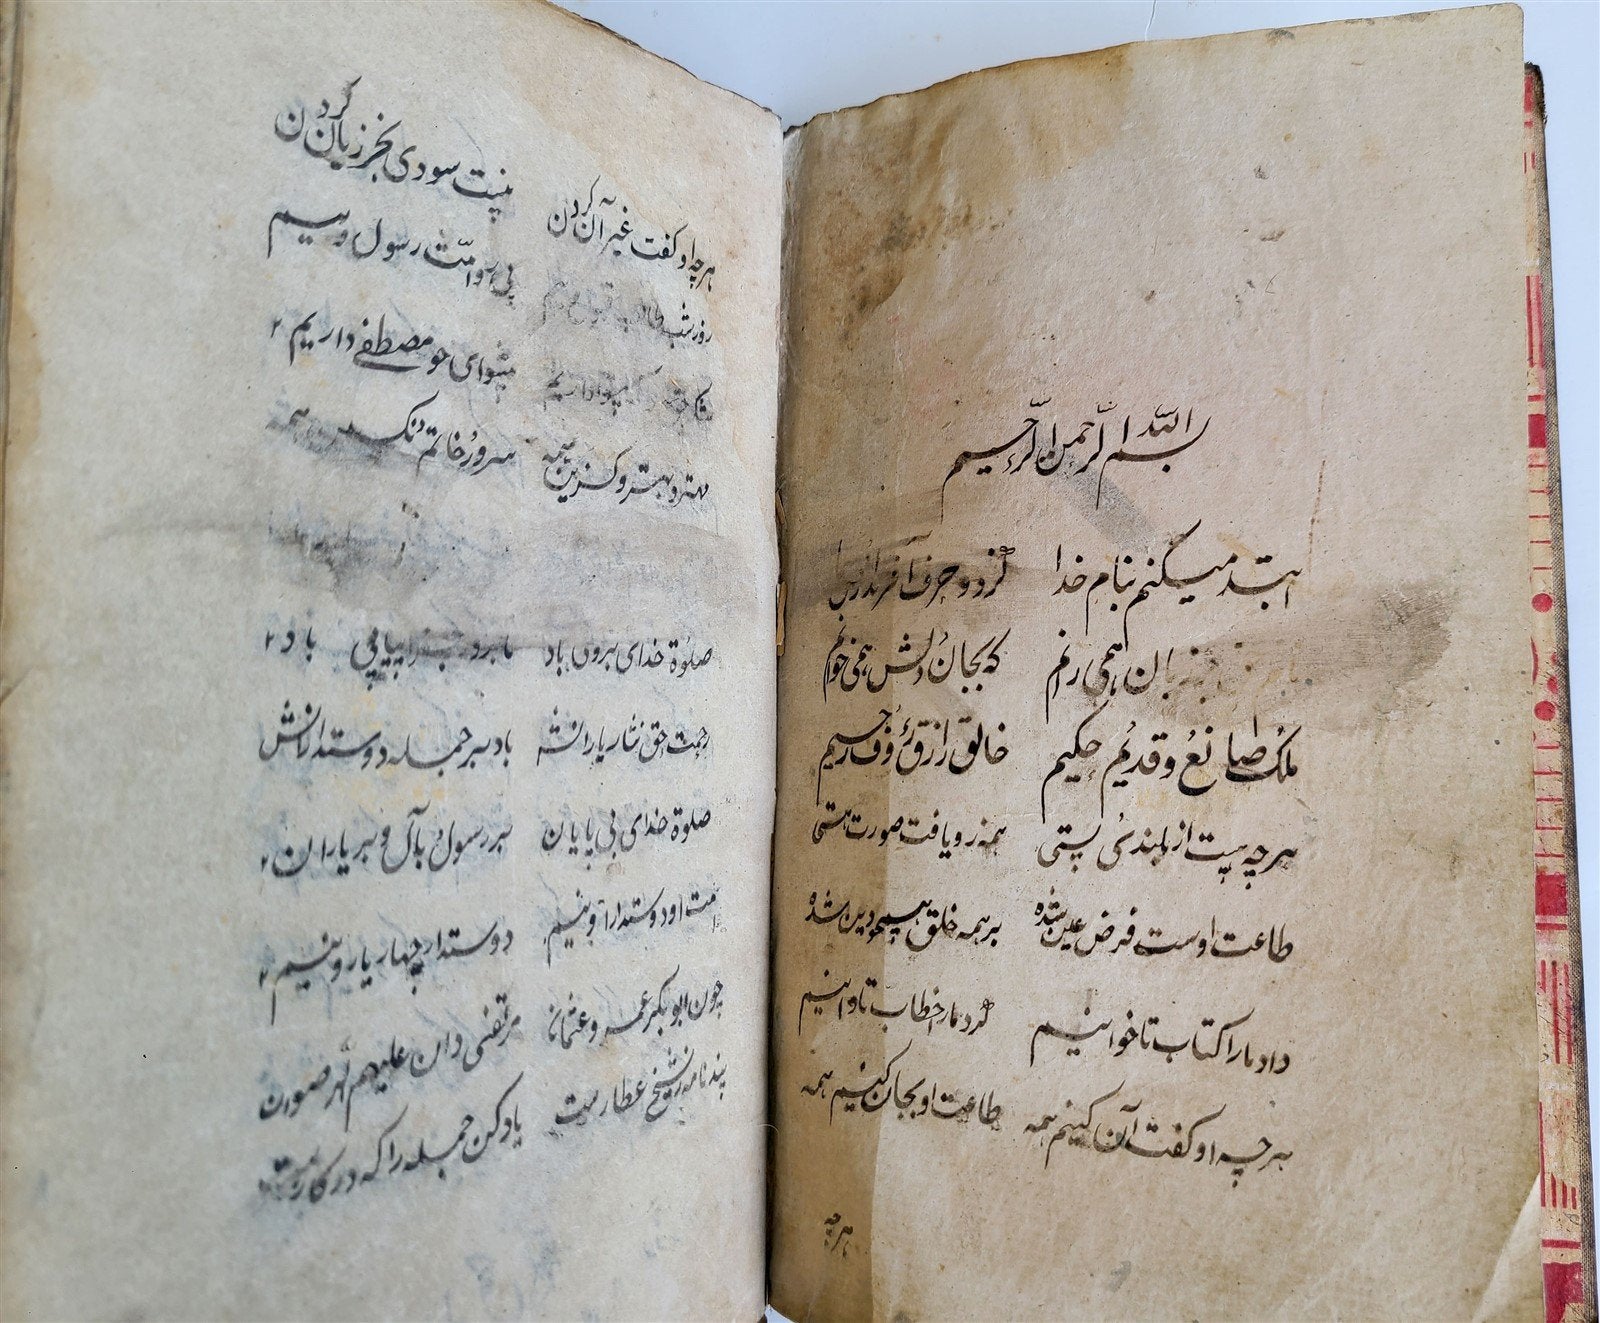 بسم الله الرحمن الرحیم
ابتدا میکنم بنام خدا کز دو حرف آفرید
بزبان همی رانم که بجان و دلش همی خوانم
ملک صانع و قدیم حکیم خالق رازق رؤف رحیم
هرچه هست از بلندی پستی همه زو یافت صورت هستی
طاعت اوست فرض عین شده بر همه خلق همچو دین شده
داد ما را کتاب تا خوانیم کرد ما را خطاب تا دانیم
هرچه او کفت آن کنیم همه طاعت او بجان کنیم همه
هرچه
هرچه او کفت غیر آن کردن نیست سودی بجز زیان کردن
روز شب طالب پی رو امت رسول وییم
داریم پیشوای چو مصطفی داریم
مهتر و بهتر و کزین همه سرور خاتم همه
صلوة خدای برون باد تا بروز باد
رحمت حق نثار یارانش باد بر جمله دوستدارانش
صلوة خدای بی پایان بر رسول بآل و بر یاران
امت او دوستدار اوئیم دوستدار چهار یار وئیم
چون ابوبکر عمر و عثمان مرتضی دان علیهم
پندنامه ز شیخ عطارست یاد کن جمله را که در کارست